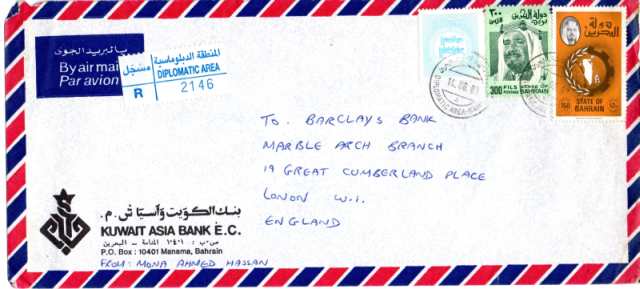 بالبريد الجوي
By air mail
Par avion
المنطقة الدبلوماسية
مسجل
DIPLOMATIC AREA
R 2146
٣٠٠ دولة البحرين
300 FILS STATE OF BAHRAIN
دولة البحرين
STATE OF BAHRAIN
DIPLOMATIC AREA
TO. BARCLAYS BANK
MARBLE ARCH BRANCH
19 GREAT CUMBERLAND PLACE
LONON W.1.
ENGLAND
بنك الكويت وآسيا ش.م.
KUWAIT ASIA BANK E.C.
ص.ب: ١٠٤٠١ المنامة - البحرين
P.O. Box: 10401 Manama, Bahrain
FROM: MONA AHMED HASSAN